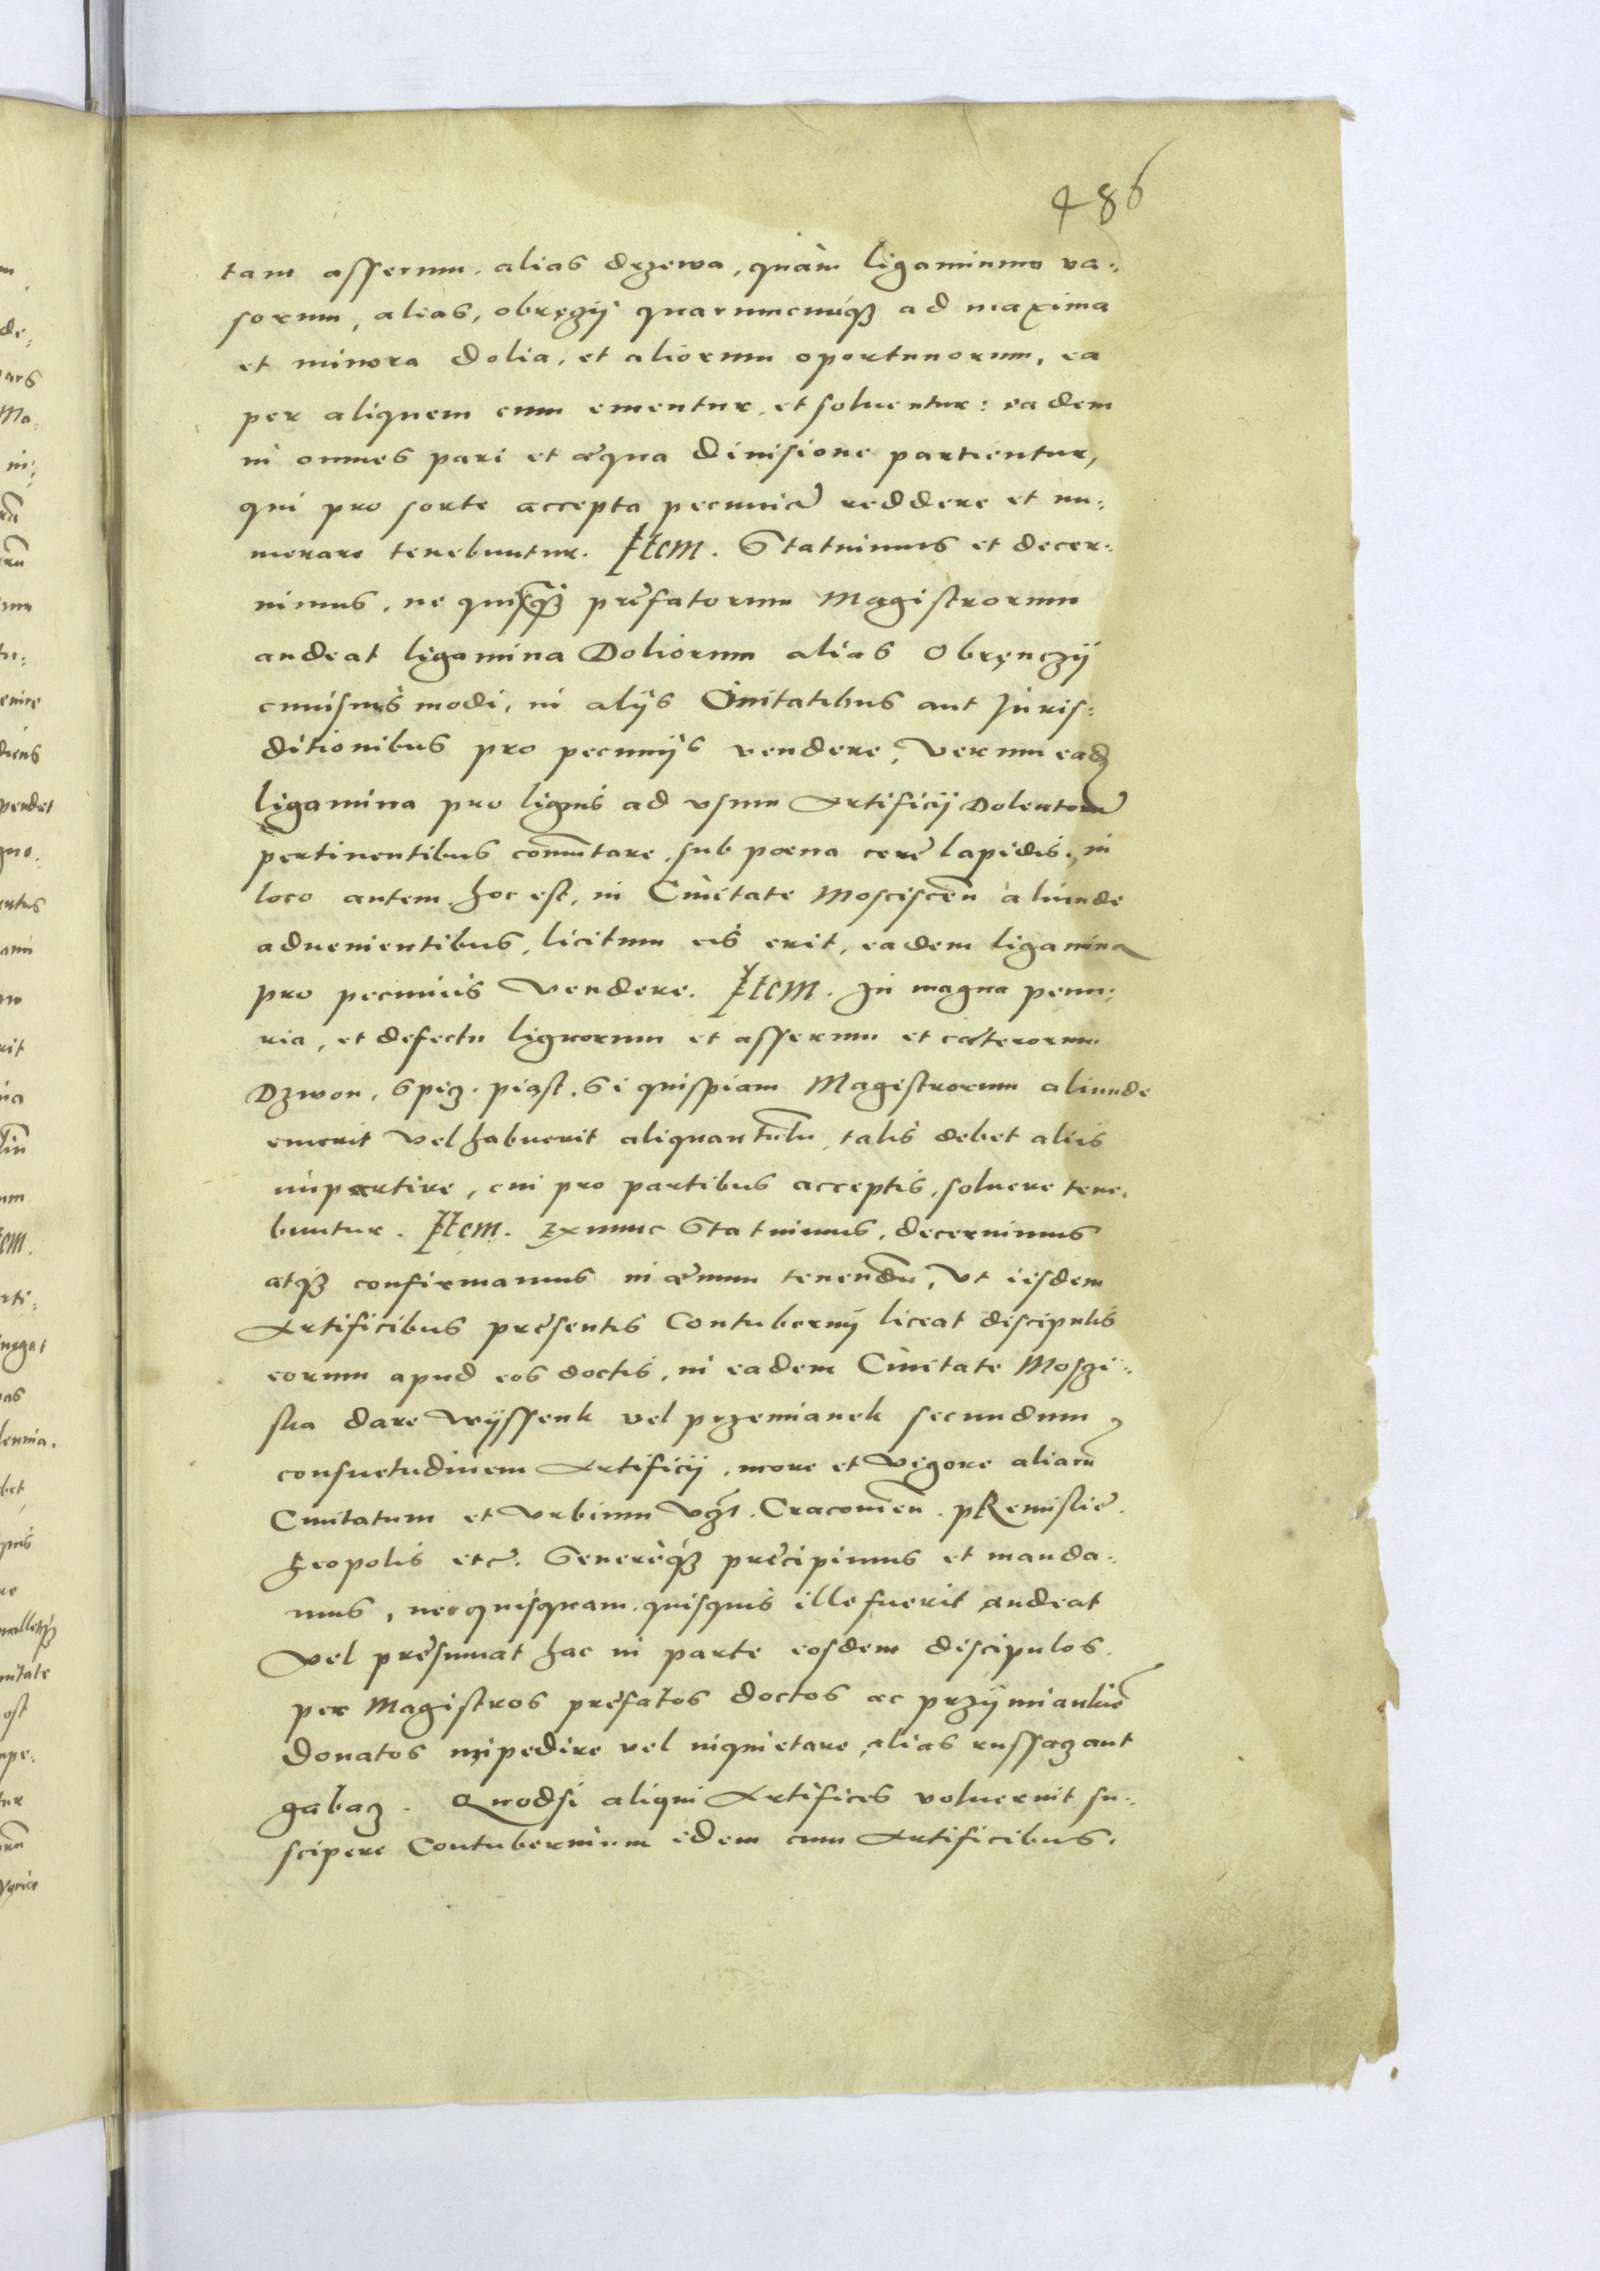 486
tam asserum, alias drzewa, quàm ligaminum va⸗
sorum, alias, obręzij quarumcunq꜖ ad maxima
et minora dolia, et aliorum oportunorum, ea
per aliquem cum ementur, et soluentur: eadem
in omnes pari et æqua diuisione partientur,
qui pro sorte accepta pecuniā reddere et nu⸗
merare tenebuntur. Item. Statuimus et decer⸗
nimus, ne præfatorum Magistrorum
audeat ligamina Doliorum alias Obręnczij
cuiusuis modi, in alijs Ciuitatibus aut Iuris⸗
ditionibus pro pecunijs vendere, Verum ead
ligamina pro lignis ad vsum Artificij Doleatorū
pertinentibus com̄utare, sub pœna ceræ lapidis, in
loco autem hoc est, in Ciuitate Moscisceñ aliunde
aduenientibus, licitum eis erit, eadem ligamina
pro pecuniis Vendere. Item. In magna penu⸗
ria, et defectu lignorum et asserum et cæterorum
Dzwon, Spicz. piast. Si quispiam Magistrorum aliunde
emerit Vel habuerit aliquantulū, talis debet aliis
impartire, cui pro partibus acceptis, soluere tene⸗
buntur. Item. Ex nunc Statuimus, decernimus
atq꜖ confirmamus in æuum tenendū, Vt iisdem
Artificibus præsentis Contubernij liceat discipulis
eorum apud eos doctis, in eadem Ciuitate Moszi⸗
ska dare Wyssenk vel przemianek secundum
consuetudinem Artificij, more et Vigore aliarū
Ciuitatum et Vrbium Vz̄. Cracouieñ. pRemisliē.
Leopolis etc̄. Sereneq꜖ præcipimus et manda⸗
mus, nec quisquam quisquis ille fuerit audeat
Vel præsumat hac in parte eosdem discipulos
per Magistros præfatos doctos ac przijmiankiē
donatos impedire vel inquietare alias russacz aut
gabacz. Quodsi aliqui Artifices voluerint su⸗
scipere Contubernium idem cum Artificibus.